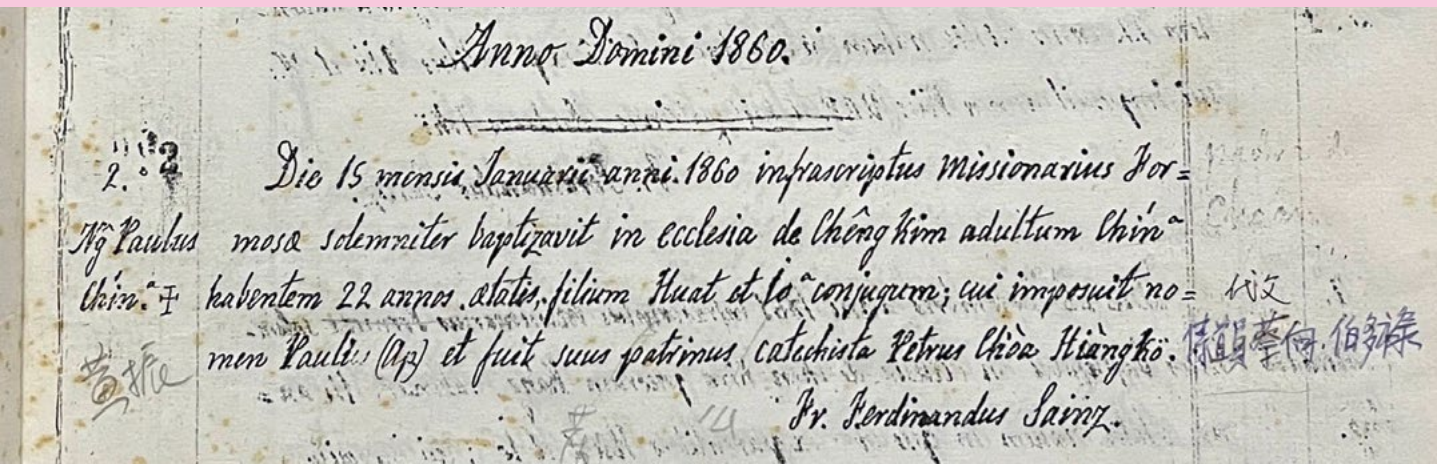 Anno Domini 1860.
2.
Die 15 mensis Januarii anni 1860 infrascriptus Missionarius For=
Ñg Paulus
mosæ solemniter baptizavit in ecclesia de Chêng Kim adultum Chínª
Chín.ª ✠
habentem 22 annos ætatis, filium Huat et Loª conjugum; cui imposuit no=
代父
men Paulus (Ap) et fuit suus patrinus catechista Petrus Chòa Hiàngkö.
黃振
傳員蔡向伯多祿
Fr. Ferdinandus Sainz.